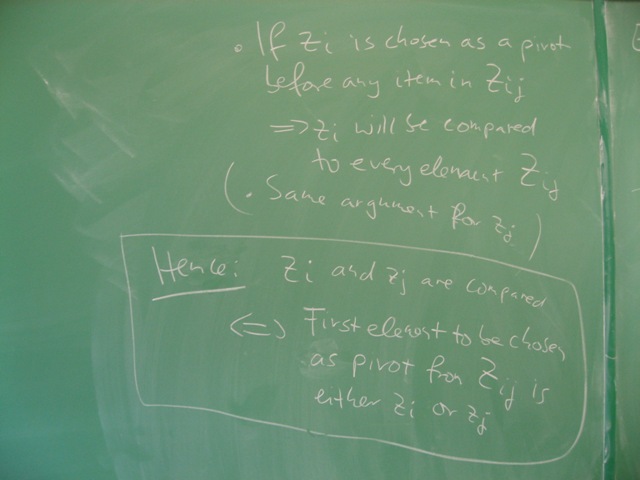 • If zi is chosen as a pivot
before any item in Zij
=> zi will be compared
to every element Zij
(• Same argument for zj)
Hence: zi and zj are compared
<=> First element to be chosen
as pivot from Zij is
either zi or zj